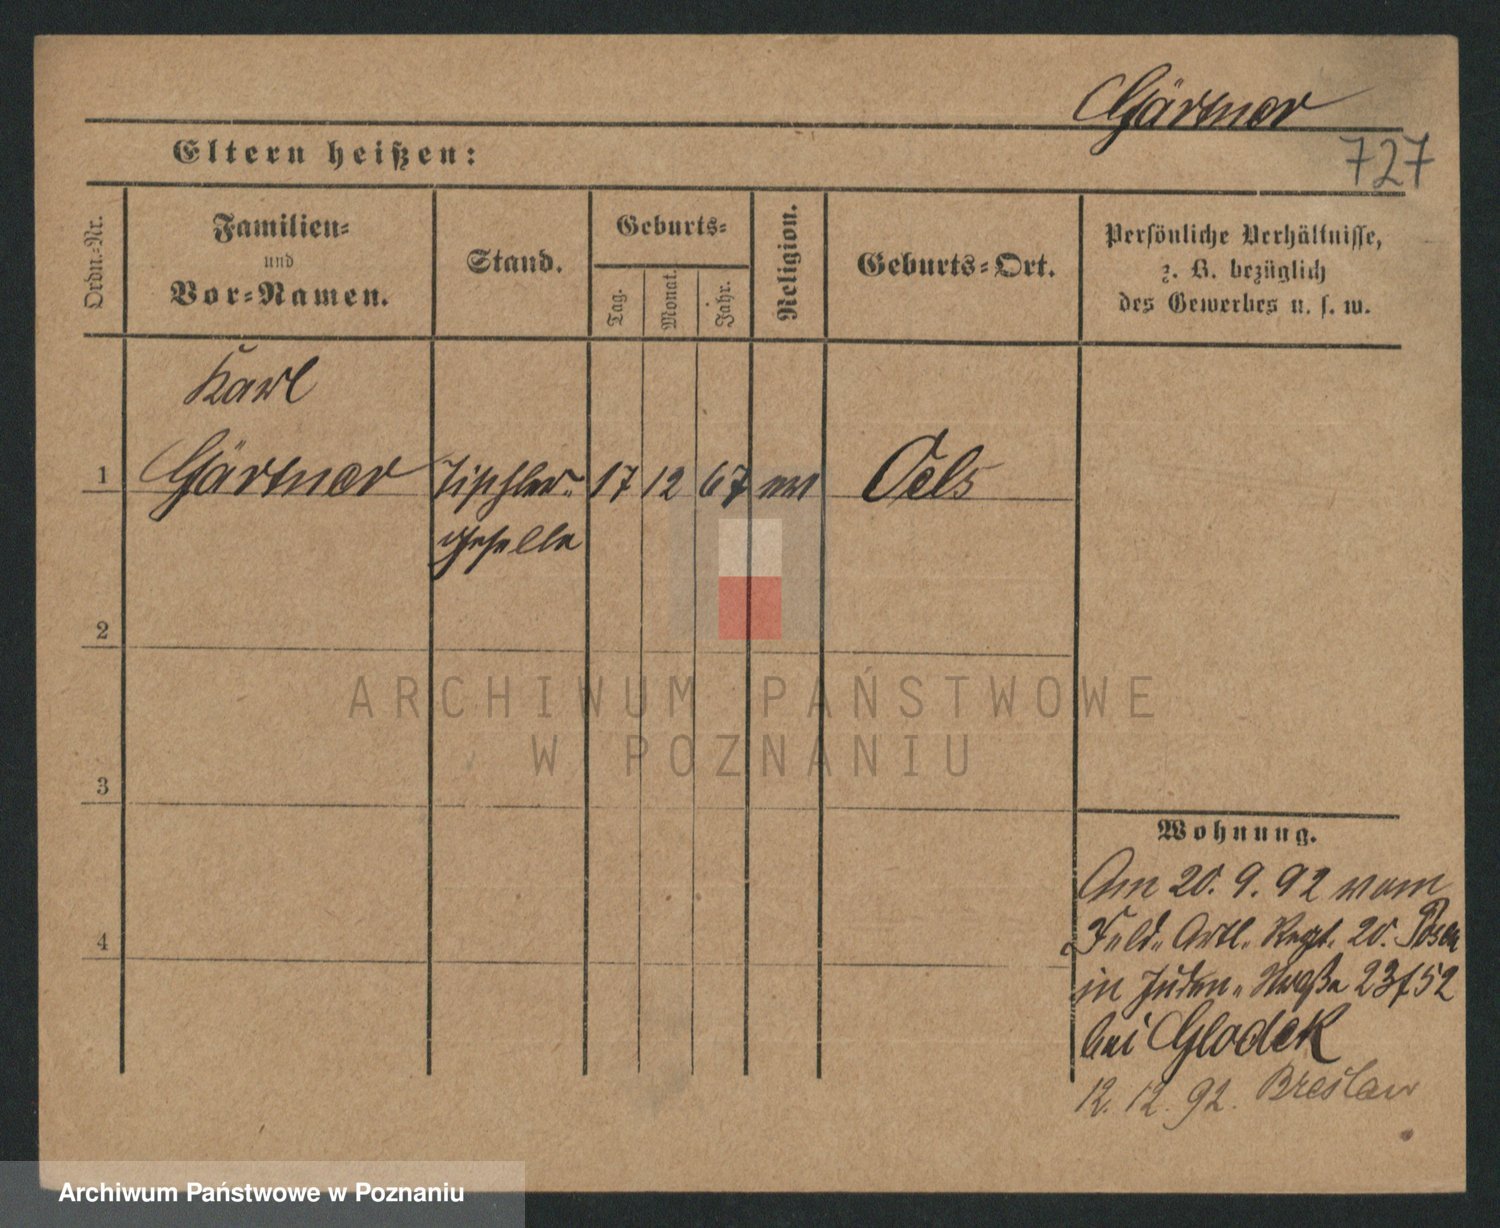 Gärtner
727
Eltern heißen:
Ordn.-Nr.
Familien-
und
Vor-Namen.
Stand.
Geburts-
Tag.
Monat.
Jahr.
Religion.
Geburts-Ort.
Persönliche Verhältnisse,
z. B. bezüglich
des Gewerbes u. s. w.
Karl
1 Gärtner Tischler- 17 12 67 ev Oels
geselle
2
3
4
ARCHIWUM PAŃSTWOWE
W POZNANIU
Wohnung.
Am 20. 9. 92 vom
Feld- Artl. Regt. 20. Posen
in Juden-Straße 23/52
bei Glodek
12. 12. 92. Breslau
Archiwum Państwowe w Poznaniu